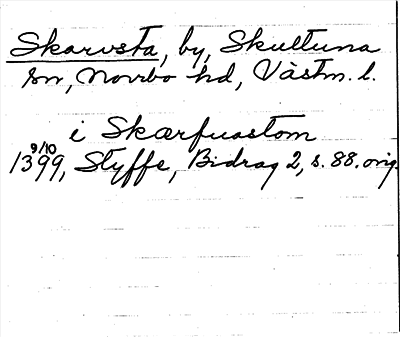 Skarvsta, by, Skultuna
sn, Norrbo hd, Västm. l.
i Skærfuastom
9/10
1399, Styffe, Bidrag 2, s. 88. orig.